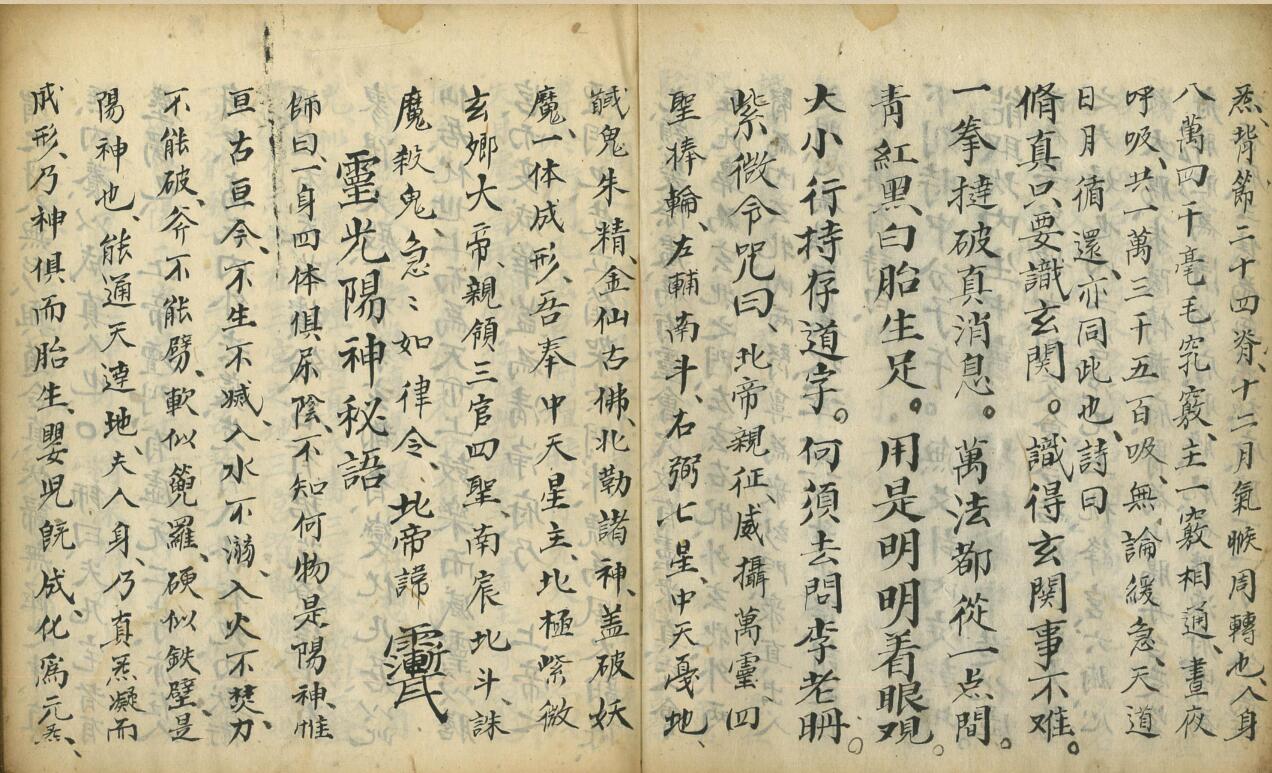 炁、背節二十四脊、十二月氣候周轉也、人身
八萬四千毫毛窍竅、主一竅相通、晝夜
呼吸、共一萬三千五百吸、無論緩急、天道
日月循還、亦同此也、詩曰
脩真只要識玄関。識得玄関事不难。
一拳撻破真消息。萬法都從一点間。
青紅黑白胎生足。用是明明着眼观。
大小行持存道字。何須去問李老聃。
紫微令咒曰、北帝親征、威攝萬靈、四
聖捧輪、左輔南斗、右弼七星、中天戞地、
馘鬼朱精、金仙古佛、北勒諸神、盖破妖
魔、一体成形、吾奉中天星主、北極紫微
玄卿大帝、親領三官四聖、南宸北斗、誅
魔殺鬼、急〻如律令、北帝諱
靈光陽神秘語
師曰、一身四体俱屎陰、不知何物是陽神、惟
亘古亘今、不生不滅、入水不溺、入火不焚、力
不能破、斧不能劈、軟似兜羅、硬似鉄壁、是
陽神也、能通天達地、夫人身、乃真炁凝而
成形、乃神俱而胎生、嬰児既成、化為元炁、